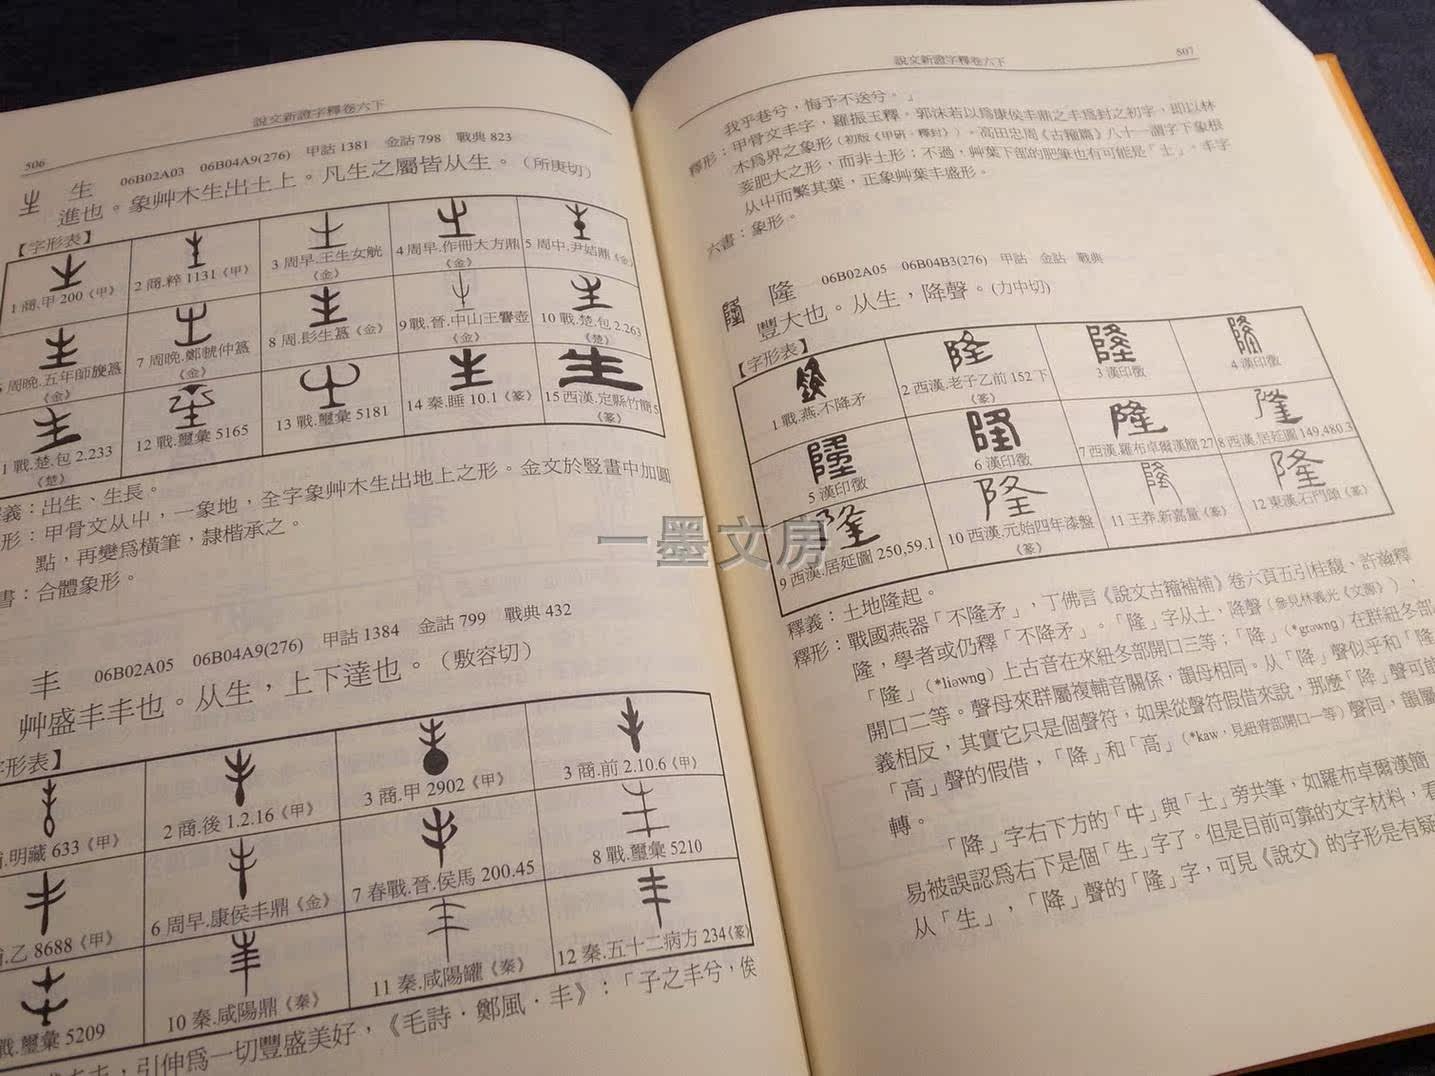 說文新證字釋卷六下
506
生 06B02A03 06B04A9(276) 甲詁 1381 金詁 798 戰典 823
進也。象艸木生出土上。凡生之屬皆从生。（所庚切）
【字形表】
1 商.甲 200《甲》
2 商.粹 1131《甲》
3 周早.王生女觥《金》
4 周早.作冊大方鼎《金》
5 周中.尹姞鼎《金》
周晚.五年師旋簋《金》
7 周晚.鄭虢仲簋《金》
8 周.髟生簋《金》
9 戰.晉.中山王響壺《金》
10 戰.楚.包 2.263《楚》
1 戰.楚.包 2.233《楚》
12 戰.璽彙 5165
13 戰.璽彙 5181
14 秦.睡 10.1《篆》
15 西漢.定縣竹簡 5《篆》
義：出生、生長。
形：甲骨文从屮，一象地，全字象艸木生出地上之形。金文於豎畫中加圓
點，再變爲橫筆，隸楷承之。
書：合體象形。
丰 06B02A05 06B04A9(276) 甲詁 1384 金詁 799 戰典 432
艸盛丰丰也。从生，上下達也。（敷容切）
字形表】
.明藏 633《甲》
2 商.後 1.2.16《甲》
3 商.甲 2902《甲》
3 商.前 2.10.6《甲》
.乙 8688《甲》
6 周早.康侯丰鼎《金》
7 春戰.晉.侯馬 200.45
8 戰.璽彙 5210
戰.璽彙 5209
10 秦.咸陽鼎《秦》
11 秦.咸陽罐《秦》
12 秦.五十二病方 234《篆》
，引伸爲一切豐盛美好，《毛詩．鄭風．丰》：「子之丰兮，俟
說文新證字釋卷六下
507
我乎巷兮，悔予不送兮。」
釋形：甲骨文丰字，羅振玉釋。郭沫若以爲康侯丰鼎之丰爲封之初字，即以林
木爲界之象形（初版《甲研．釋封》）。高田忠周《古籀篇》八十一謂字下象根
荄肥大之形，而非土形；不過，艸葉下部的肥筆也有可能是「土」。丰字
从屮而繁其葉，正象艸葉丰盛形。
六書：象形。
隆 06B02A05 06B04B3(276) 甲詁 金詁 戰典
豐大也。从生，降聲。（力中切）
【字形表】
1 戰.燕.不降矛
2 西漢.老子乙前 152 下《篆》
3 漢印徵
4 漢印徵
5 漢印徵
6 漢印徵
7 西漢.羅布卓爾漢簡 27
8 西漢.居延圖 149,480.3
9 西漢.居延圖 250,59.1
10 西漢.元始四年漆盤《篆》
11 王莽.新嘉量《篆》
12 東漢.石門頌《篆》
釋義：土地隆起。
釋形：戰國燕器「不隆矛」，丁佛言《說文古籀補補》卷六頁五引桂馥、許瀚釋
隆，學者或仍釋「不降矛」。「隆」字从土，降聲（參見林義光《文源》），
「隆」（*liəwng）上古音在來紐冬部開口三等；「降」（*grəwng）在群紐冬部
開口二等。聲母來群屬複輔音關係，韻母相同。从「降」聲似乎和「隆
義相反，其實它只是個聲符，如果從聲符假借來說，那麼「降」聲可能
「高」聲的假借，「降」和「高」（*kaw，見紐宵部開口一等）聲同，韻屬
轉。
「降」字右下方的「㐄」與「土」旁共筆，如羅布卓爾漢簡
易被誤認爲右下是個「生」字了。但是目前可靠的文字材料，看
从「生」，「降」聲的「隆」字，可見《說文》的字形是有疑
一墨文房